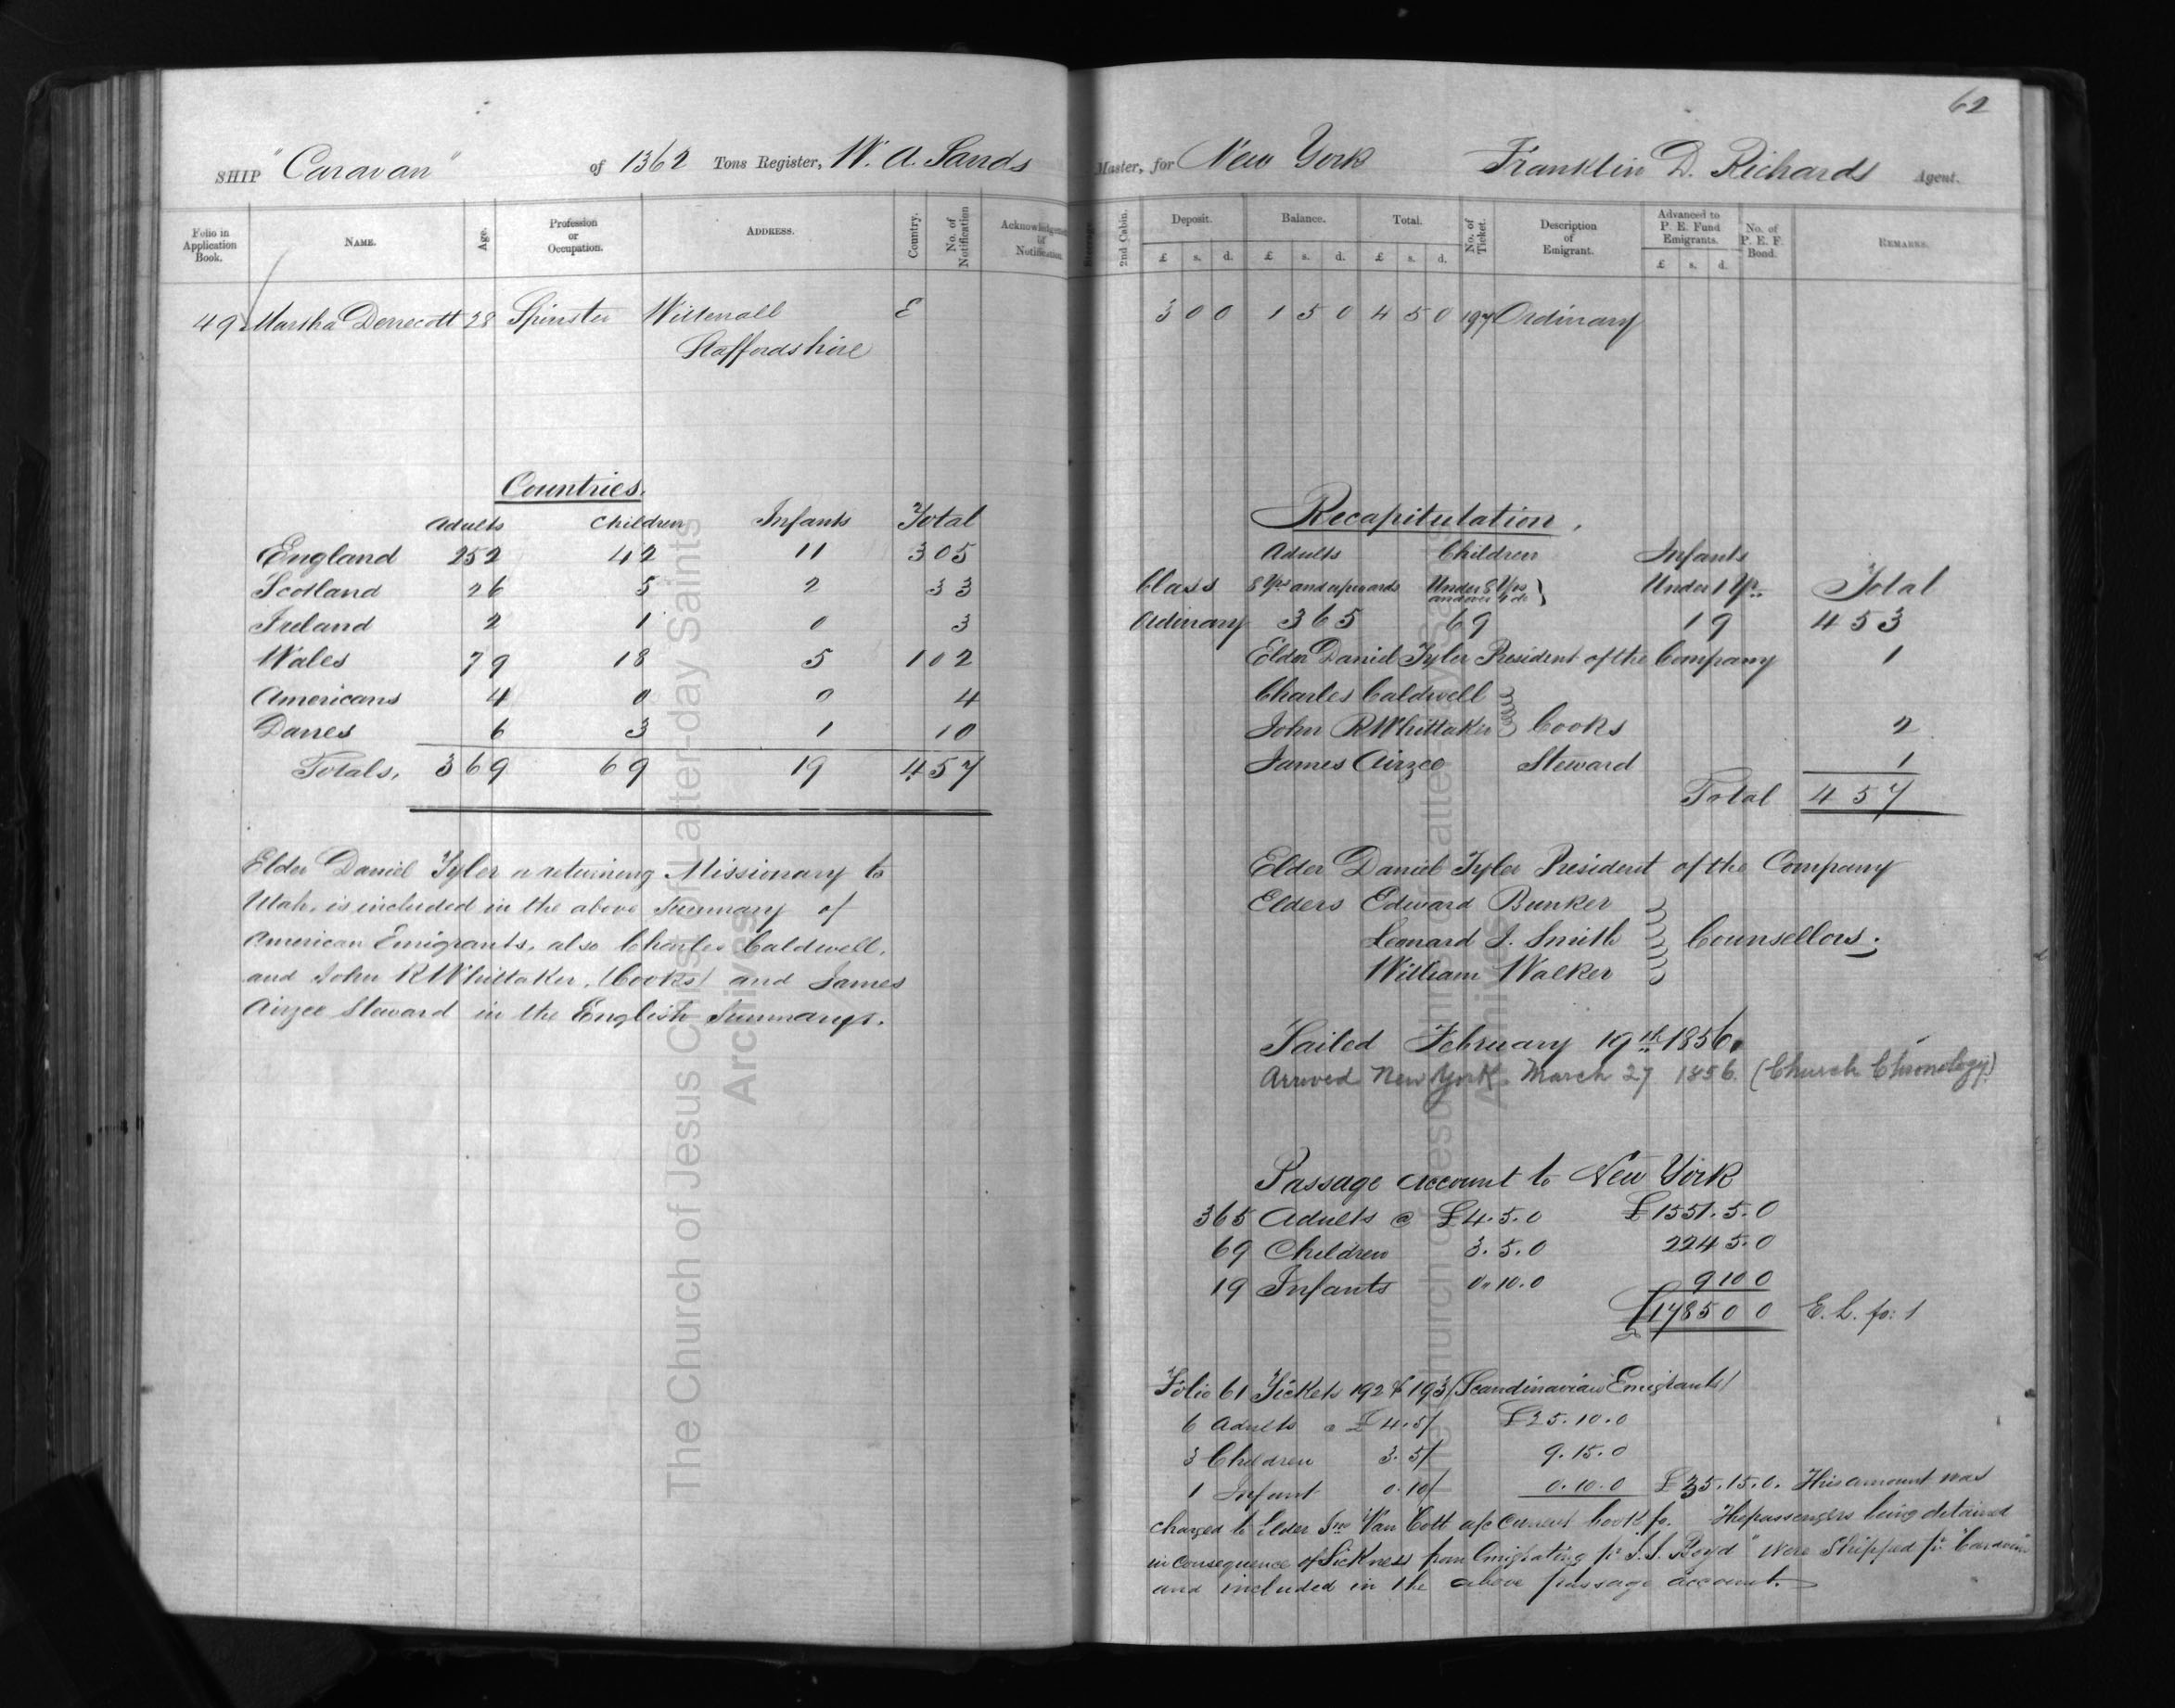 62
SHIP "Caravan" of 1362 Tons Register, W. A. Sands Master, for New York Franklin D. Richards Agent.
Folio in Application Book. NAME. Age. Profession or Occupation. ADDRESS. Country. No. of Notification Acknowledgement of Notification. Steerage 2nd Cabin. Deposit. Balance. Total. No. of Ticket. Description of Emigrant. Advanced to P. E. Fund Emigrants. No. of P. E. F. Bond. REMARKS.
£ s. d. £ s. d. £ s. d. £ s. d.
49 Martha Dennecott 28 Spinster Willenall E 3 0 0 1 5 0 4 5 0 197 Ordinary
Staffordshire
Countries.
Adults Children Infants Total
England 252 42 11 305
Scotland 26 5 2 33
Ireland 2 1 0 3
Wales 79 18 5 102
Americans 4 0 0 4
Danes 6 3 1 10
Totals, 369 69 19 457
Elder Daniel Tyler a returning Missionary to
Utah, is included in the above Summary of
American Emigrants, also Charles Caldwell,
and John R Whittaker, (Cooks) and James
Airzee Steward in the English Summary.
Recapitulation.
Adults Children Infants
Class 8 Yrs and upwards Under 8 Yrs and over 1 do } Under 1 Yr. Total
Odinary 365 69 19 453
Elder Daniel Tyler President of the Company 1
Charles Caldwell
John R Whittaker } Cooks 2
James Airzee Steward 1
Total 457
Elder Daniel Tyler President of the Company
Elders Edward Bunker
Leonard I. Smith } Counsellors.
William Walker
Sailed February 19th 1856.
Arrived New York. March 27 1856. (Church Chronology)
Passage Account to New York
365 Adults @ £4.5.0 £1551.5.0
69 Children 3.5.0 224 5.0
19 Infants 0.10.0 9 10 0
£1785 0 0 E. L. fo: 1
Folio 61 Tickets 192 & 193 (Scandinavian Emigrants)
6 Adults @ £4.5/ £25.10.0
3 Children 3.5/ 9.15.0
1 Infant 0.10/ 0.10.0 £35.15.0. This amount was
charged to Elder Jno Van Cott a/c Current book fo. The passengers being detained
in consequence of Sickness from Emigrating pr. "J. J. Boyd" were Shipped pr. "Caravan"
and included in the above passage account.
The Church of Jesus Christ of Latter-day Saints
Archives
The Church of Jesus Christ of Latter-day Saints
Archives